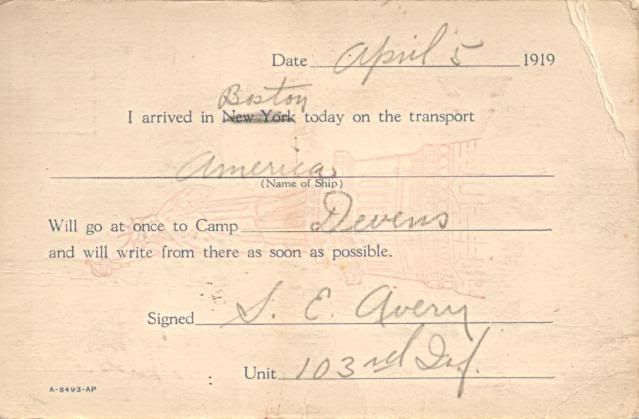 Date April 5 1919
Boston
I arrived in New York today on the transport
America
(Name of Ship)
Will go at once to Camp Devens
and will write from there as soon as possible.
Signed S. E. Avery
Unit 103rd Inf.
A-8493-AP